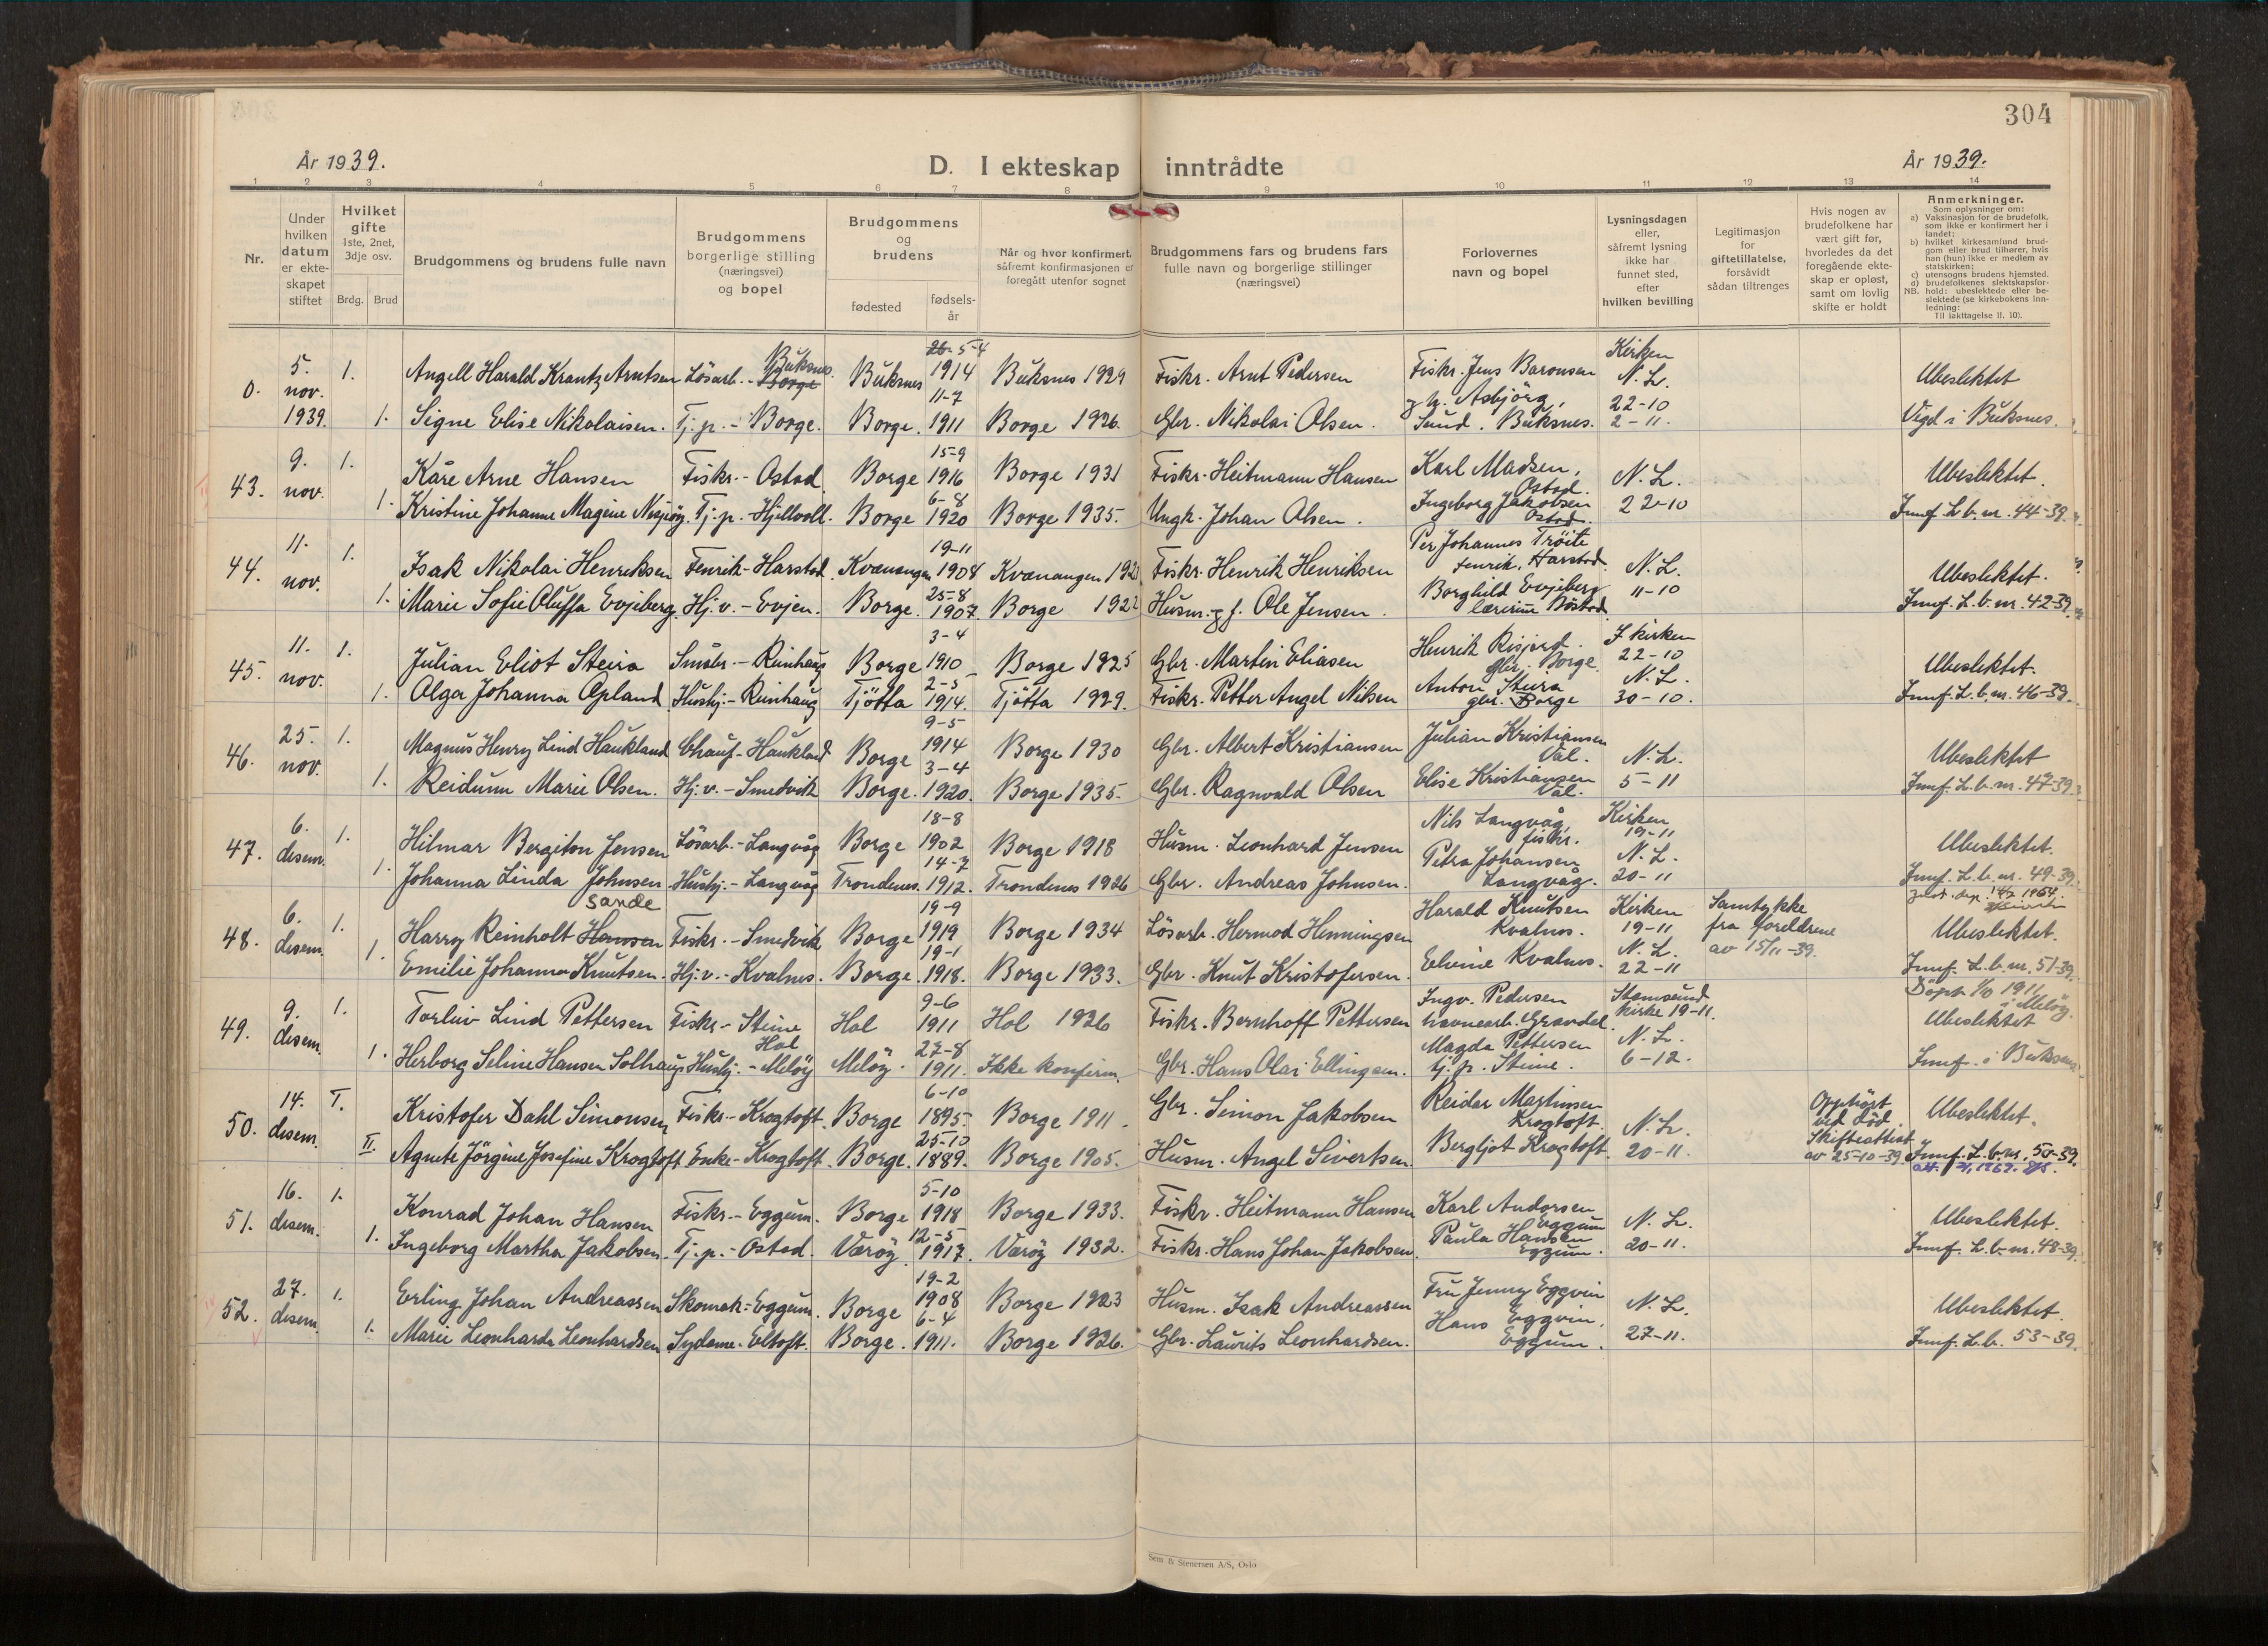 304
År 1939.
D. I ekteskap inntrådte
År 1939.
1 2 3 4 5 6 7 8 9 10 11 12 13 14
Nr.
Under hvilken datum er ekte-skapet stiftet
Hvilket gifte 1ste, 2net, 3dje osv.
Brdg. Brud
Brudgommens og brudens fulle navn
Brudgommens borgerlige stilling (næringsvei) og bopel
Brudgommens og brudens
fødested
fødsels-år
Når og hvor konfirmert, såfremt konfirmasjonen er foregått utenfor sognet
Brudgommens fars og brudens fars fulle navn og borgerlige stillinger (næringsvei)
Forlovernes navn og bopel
Lysningsdagen eller, såfremt lysning ikke har funnet sted, efter hvilken bevilling
Legitimasjon for giftetillatelse, forsåvidt sådan tiltrenges
Hvis nogen av brudefolkene har vært gift før, hvorledes da det foregående ekte-skap er opløst, samt om lovlig skifte er holdt
Anmerkninger.
Som oplysninger om:
a) Vaksinasjon for de brudefolk, som ikke er konfirmert her i landet;
b) hvilket kirkesamfund brud-gom eller brud tilhører, hvis han (hun) ikke er medlem av statskirken;
c) utensogns brudens hjemsted.
d) brudefolkenes slektskapsfor-hold: ubeslektede eller be-slektede (se kirkebokens inn-ledning;
NB. Til iakttagelse II. 10).
0. 5. nov. 1939. 1. Angell Harald Krantz Arntsen Lösarb. - Borge Buksnes. Buksnes 26-5-4 1914 Buksnes 1929 Fiskr. Arnt Pedersen Fiskr. Jens Baronsen Kirken N. L. Ubeslektet
1. Signe Elise Nikolaisen. Tj. p. - Borge. Borge. 11-7 1911 Borge 1926. Gbr. Nikolai Olsen. g h. Asbjörg, Sund. Buksnes. 22-10 2-11. Vigd i Buksnes.
43. 9. nov. 1. Kåre Arne Hansen Fiskr. - Ostad Borge 15-9 1916 Borge 1931 Fiskr. Heitmann Hansen Karl Madsen, Ostad. N. L. Ubeslektet.
1. Kristine Johanne Magine Tj. p. - Hjellvoll. Borge 6-8 1920 Borge 1935. Ungk. Johan Olsen. Ingeborg Jakobsen Ostad. 22-10 Innf. L. b. nr. 44-39.
44. 11. nov. 1. Isak Nikolai Henriksen Fenrik - Harstad. Kvænangen 19-11 1908 Kvænangen Fiskr. Henrik Henriksen Per Johannes Tröite fenrik, Harstad. N. L. Ubeslektet.
1. Marie Sofie Oluffa Evjeberg. Hj. v. - Evjen. Borge. 25-8 1907. Borge 1922 Husm. g f. Ole Jensen. Borghild Evjeberg lærerinne Böstad 11-10 Innf. L. b. nr. 42-39.
45. 11. nov. 1. Julian Eliot Steira Småbr. - Reinhaug Borge 3-4 1910 Borge 1925 Gbr. Martin Eliasen Henrik Risjord. gbr. Borge. I kirken 22-10 Ubeslektet.
1. Olga Johanna Opland Hushj. - Reinhaug Tjötta 2-5 1914. Tjötta 1929. Fiskr. Petter Angel Nilsen Anton Steira gbr. Borge N. L. 30-10. Innf. L. b. nr. 46-39.
46. 25. nov. 1. Magnus Henry Lind Haukland Chauf - Haukland Borge 9-5 1914 Borge 1930 Gbr. Albert Kristiansen Julian Kristiansen Val. N. L. Ubeslektet
1. Reidunn Marie Olsen. Hj. v. - Smedvik Borge. 3-4 1920. Borge 1935. Gbr. Ragnvald Olsen Elise Kristiansen Val. 5-11 Innf. L. b. nr. 47-39.
47. 6. desem. 1. Hilmar Bergiton Jensen Lösarb. - Langvåg Borge 18-8 1902 Borge 1918 Husm. Leonhard Jensen Nils Langvåg, fiskr. Kirken 19-11 Ubeslektet.
1. Johanna Linda Johnsen Hushj. - Langvåg Trondenes. 14-7 1912. Trondenes 1926 Gbr. Andreas Johnsen. Petra Johansen Langvåg. N. L. 20-11 Innf. L. b. nr. 49-39.
48. 6. desem. 1. Harry Reinholt Hansen Sande Fiskr. - Smedvik Borge 19-9 1919 Borge 1934 Lösarb. Hermod Henningsen Harald Knutsen Kvalnes. Kirken 19-11 Samtykke fra foreldrene av 15/11-39. Ubeslektet.
1. Emilie Johanna Knutsen. Hj. v. - Kvalnes. Borge. 19-1 1918. Borge 1933. Gbr. Knut Kristofersen. Eline Kvalnes. N. L. 22-11 Innf. L. b. nr. 51-39.
49. 9. desem. 1. Torleiv Lind Pettersen Fiskr. - Steine Hol Hol 9-6 1911 Hol 1926 Fiskr. Bernhoff Pettersen Ingv. Pedersen havnearb. Gravdal. Stamsund kirke 19-11. Döpt 1/10 1911 i Melöy. Ubeslektet
1. Herborg Seline Hansen Solhaug Hushj. - Melöy Melöy. 27-8 1911. Ikke konfirm. Gbr. Hans Olai Ellingsen. Magda Pettersen tj. p. Steine. N. L. 6-12. Innf. i Buksnes
50. 14. desem. I. Kristofer Dahl Simonsen Fiskr. - Krogtoft. Borge 6-10 1895. Borge 1911. Gbr. Simon Jakobsen Reidar Martinsen Krogtoft. N. L. Opphört ved död. Ubeslektet.
II. Agnete Jörgine Josefine Krogtoft Enke - Krogtoft. Borge. 25-10 1889. Borge 1905. Husm. Angel Sivertsen. Bergljot Krogtoft. 20-11. Skifteattest av 25-10-39. Innf. L. b. nr. 50-39.
51. 16. desem. 1. Konrad Johan Hansen Fiskr. - Eggum. Borge 5-10 1918 Borge 1933. Fiskr. Heitmann Hansen Karl Andorsen Eggum N. L. Ubeslektet.
1. Ingeborg Martha Jakobsen. Tj. p. - Ostad. Væröy 12-5 1917. Væröy 1932. Fiskr. Hans Johan Jakobsen. Paula Hansen Eggum. 20-11. Innf. L. b. nr. 48-39.
52. 27. desem. 1. Erling Johan Andreassen Skomak. - Eggum. Borge 19-2 1908 Borge 1923 Husm. Isak Andreassen Fru Jenny Eggvin N. L. Ubeslektet.
1. Marie Leonharda Leonhardsen Sydame. - Eltoft. Borge. 6-4 1911. Borge 1926. Gbr. Laurits Leonhardsen. Hans Eggvin, Eggum. 27-11. Innf. L. b. 53-39.
Sem & Stenersen A/S, Oslo